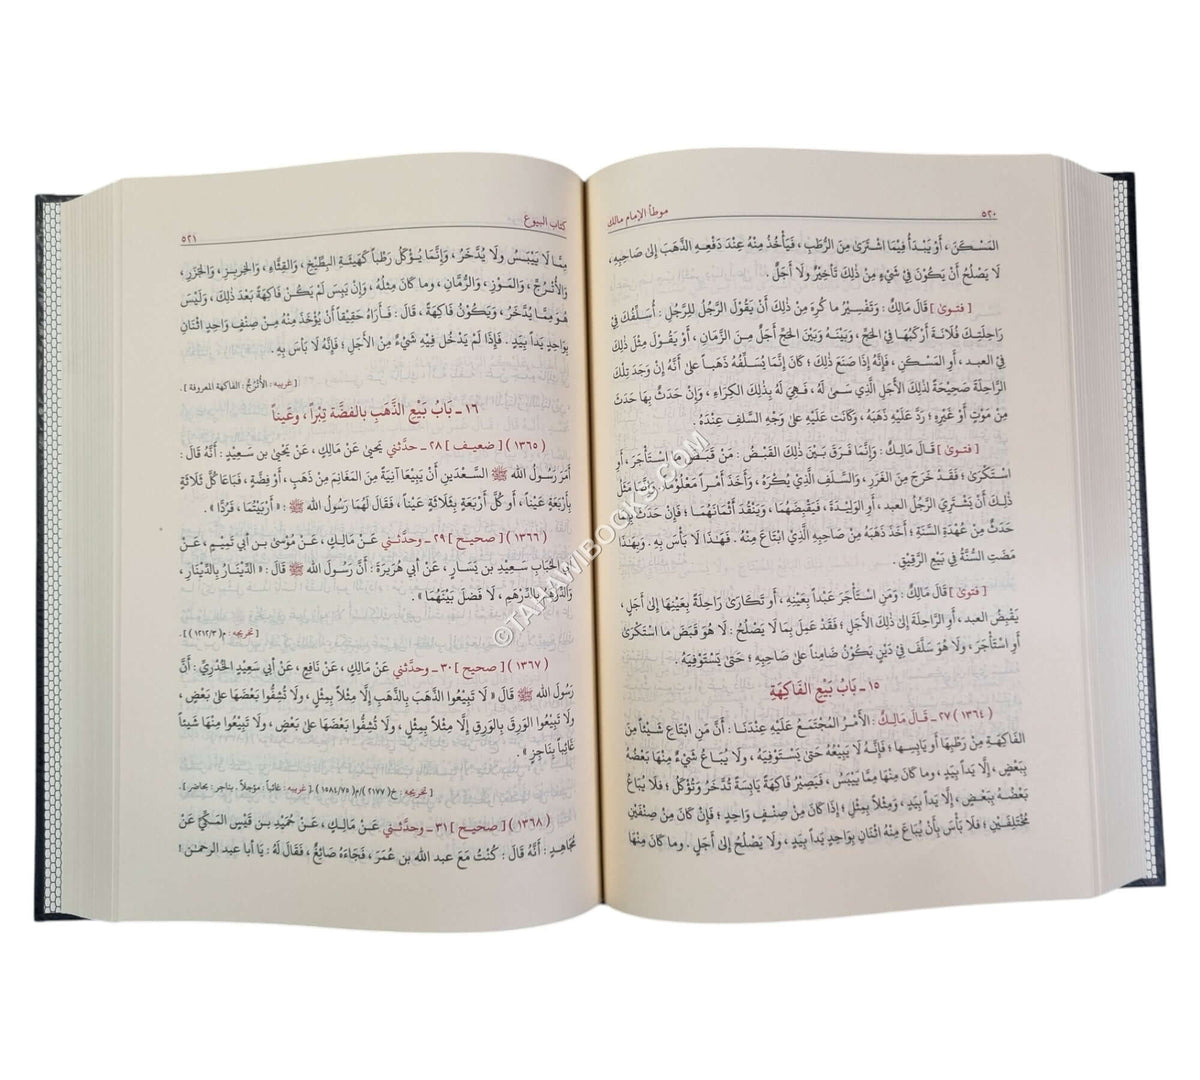 ٥٢٠
موطأ الإمام مالك
المَسْكَنَ ، أَوْ يَبْدَأُ فِيمَا اشْتَرَىٰ مِنَ الرُّطَبِ ، فَيَأْخُذُ مِنْهُ عِنْدَ دَفْعِهِ الذَّهَبَ إِلىٰ صَاحِبِهِ ،
لَا يَصْلُحُ أَنْ يَكُونَ فِي شَيْءٍ مِنْ ذٰلِكَ تَأْخِيرٌ ولَا أَجَلٌ .
[ فتوىٰ ] قَالَ مَالِكٌ : وَتَفْسِيرُ ما كُرِهَ مِنْ ذٰلِكَ أَنْ يَقُولَ الرَّجُلُ لِلرَّجُلِ : أُسَلِّفُكَ فِي
رَاحِلَتِكَ فُلَانَةَ أَرْكَبُهَا فِي الحَجِّ ، وَبَيْنَهُ وَبَيْنَ الحَجِّ أَجَلٌ مِنَ الزَّمَانِ ، أَوْ يَقُولَ مِثْلَ ذٰلِكَ
فِي العبدِ ، أَوِ المَسْكَنِ ، فَإِنَّهُ إِذَا صَنَعَ ذٰلِكَ ؛ كَانَ إِنَّمَا يُسَلِّفُهُ ذَهَباً عَلىٰ أَنَّهُ إِنْ وَجَدَ تِلْكَ
الرَّاحِلَةَ صَحِيحَةً لِذٰلِكَ الأَجَلِ الَّذِي سَمىٰ لَهُ ، فَهِيَ لَهُ بِذٰلِكَ الكِرَاءِ ، وَإِنْ حَدَثَ بِهَا حَدَثٌ
مِنْ مَوْتٍ أَوْ غَيْرِهِ ؛ رَدَّ عَلَيْهِ ذَهَبَهُ ، وَكَانَتْ عَلَيْهِ عَلىٰ وَجْهِ السَّلَفِ عِنْدَهُ .
[ فتوىٰ ] قَالَ مَالِكٌ : وَإِنَّمَا فَرَقَ بَيْنَ ذٰلِكَ القَبْضُ : مَنْ قَبَضَ ما اسْتَأْجَرَ ، أَوِ
اسْتَكْرَىٰ ، فَقَدْ خَرَجَ مِنَ الغَرَرِ ، وَالسَّلَفِ الَّذِي يُكْرَهُ ، وَأَخَذَ أَمْراً مَعْلُوماً . وَإِنَّمَا مَثَلُ
ذٰلِكَ أَنْ يَشْتَرِيَ الرَّجُلُ العبدَ ، أَوِ الوَلِيْدَةَ ، فَيَقْبِضَهُمَا ، وَيَنْقُدَ أَثْمَانَهُمَا ؛ فَإِنْ حَدَثَ بِهِمَا
حَدَثٌ مِنْ عُهْدَةِ السَّنَةِ ؛ أَخَذَ ذَهَبَهُ مِنْ صَاحِبِهِ الَّذِي ابْتَاعَ مِنْهُ . فَهٰذَا لَا بَأْسَ بِهِ . وَبِهٰذَا
مَضَتِ السُّنَّةُ فِي بَيْعِ الرَّقِيقِ .
[ فتوىٰ ] قَالَ مَالِكٌ : وَمَنِ اسْتَأْجَرَ عَبْداً بِعَيْنِهِ ، أَو تَكَارَىٰ رَاحِلَةً بِعَيْنِهَا إِلىٰ أَجَلٍ ،
يَقْبِضُ العبدَ ، أَوِ الرَّاحِلَةَ إِلىٰ ذٰلِكَ الأَجَلِ ؛ فَقَدْ عَمِلَ بِمَا لَا يَصْلُحُ : لَا هُوَ قَبَضَ ما اسْتَكْرَىٰ
أَوِ اسْتَأْجَرَ ، ولَا هُوَ سَلَّفَ فِي دَيْنٍ يَكُونُ ضَامِناً عَلىٰ صَاحِبِهِ ؛ حَتىٰ يَسْتَوْفِيَهُ .
١٥ ـ بَابُ بَيْعِ الفَاكِهَةِ
( ١٣٦٤ ) ٢٧ ـ قَالَ مَالِكٌ : الأَمْرُ المُجْتَمَعُ عَلَيْهِ عِنْدَنَا : أَنَّ مَنِ ابْتَاعَ شَيْئاً مِنَ
الفَاكِهَةِ مِنْ رَطْبِهَا أَو يَابِسِهَا ؛ فَإِنَّهُ لَا يَبِيْعُهُ حَتىٰ يَسْتَوْفِيَهُ ، ولَا يُبَاعُ شَيْءٌ مِنْهَا بَعْضُهُ
بِبَعْضٍ ، إِلَّا يَداً بِيَدٍ ، وما كَانَ مِنْهَا مِمَّا يَيْبَسُ ، فَيَصِيْرُ فَاكِهَةً يَابِسَةً تُدَّخَرُ وَتُؤْكَلُ ؛ فلَا يُبَاعُ
بَعْضُهُ بِبَعْضٍ ، إِلَّا يَداً بِيَدٍ ، وَمِثْلاً بِمِثْلٍ ؛ إِذَا كَانَ مِنْ صِنْفٍ وَاحِدٍ ؛ فَإِنْ كَانَ مِنْ صِنْفَيْنِ
مُخْتَلِفَيْنِ ؛ فلَا بَأْسَ بِأَنْ يُبَاعَ مِنْهُ اثْنَانِ بِوَاحِدٍ يَداً بِيَدٍ ، ولَا يَصْلُحُ إِلىٰ أَجَلٍ . وما كَانَ مِنْهَا
كتاب البيوع
٥٢١
مِمَّا لَا يَيْبَسُ ولَا يُدَّخَرُ ، وَإِنَّمَا يُؤْكَلُ رَطْباً كَهَيْئَةِ البِطِّيْخِ ، وَالقِثَّاءِ ، وَالخِرْبِزِ ، وَالجَزَرِ ،
وَالأُتْرُجِّ ، وَالمَوْزِ ، وَالرُّمَّانِ ، وما كَانَ مِثْلُهُ ، وَإِنْ يَبِسَ لَمْ يَكُنْ فَاكِهَةً بَعْدَ ذٰلِكَ ، وَلَيْسَ
هُوَ مِمَّا يُدَّخَرُ ، وَيَكُوْنُ فَاكِهَةً ، قَالَ : فَأَرَاهُ حَقِيْقاً أَنْ يُؤْخَذَ مِنْهُ مِنْ صِنْفٍ وَاحِدٍ اثْنَانِ
بِوَاحِدٍ يَداً بِيَدٍ . فَإِذَا لَمْ يَدْخُلْ فِيهِ شَيْءٌ مِنَ الأَجَلِ ؛ فَإِنَّهُ لَا بَأْسَ بِهِ .
[ غريبه : الأُتْرُجّ : الفاكهة المعروفة ] .
١٦ ـ بَابُ بَيْعِ الذَّهَبِ بالفضَّةِ تِبْراً ، وعَيناً
( ١٣٦٥ ) [ ضعيف ] ٢٨ ـ حدَّثني يَحيىٰ عَنْ مَالِكٍ ، عَنْ يَحْيىٰ بنِ سَعِيْدٍ : أَنَّهُ قَالَ :
أَمَرَ رَسُولُ الله ﷺ السَّعْدَينِ أَنْ يَبِيعَا آنِيَةً مِنَ المَغَانِمِ مِنْ ذَهَبٍ ، أَوْ فِضَّةٍ ، فَبَاعَا كُلَّ ثَلَاثَةٍ
بِأَرْبَعَةٍ عَيْناً ، أَو كُلَّ أَرْبَعَةٍ بِثَلَاثَةٍ عَيْناً ، فَقَالَ لَهُمَا رَسُولُ الله ﷺ : « أَرْبَيْتُمَا ، فَرُدَّا » .
( ١٣٦٦ ) [ صحيح ] ٢٩ ـ وحدَّثني عَنْ مَالِكٍ ، عَنْ مُوْسَىٰ بنِ أَبي تَمِيْمٍ ، عَنْ
أَبِي الحُبَابِ سَعِيْدِ بنِ يَسَارٍ ، عَنْ أَبي هُرَيْرَةَ : أَنَّ رَسُولَ الله ﷺ قَالَ : « الدِّيْنَارُ بِالدِّيْنَارِ ،
وَالدِّرْهَمُ بِالدِّرْهَمِ ، لَا فَضْلَ بَيْنَهُمَا » .
[ تخريجه : م( ١٢١٢/٣ ) ] .
( ١٣٦٧ ) [ صحيح ] ٣٠ ـ وحدَّثني عَنْ مَالِكٍ ، عَنْ نَافِعٍ ، عَنْ أَبي سَعِيْدٍ الخُدْرِيِّ : أَنَّ
رَسُولَ الله ﷺ قَالَ « لَا تَبِيْعُوا الذَّهَبَ بِالذَّهَبِ إِلَّا مِثْلاً بِمِثْلٍ ، ولَا تُشِفُّوا بَعْضَهَا عَلىٰ بَعْضٍ ،
ولَا تَبِيْعُوا الوَرِقَ بِالوَرِقِ إِلَّا مِثْلاً بِمِثْلٍ ، ولَا تُشِفُّوا بَعْضَهَا عَلىٰ بَعْضٍ ، ولَا تَبِيْعُوا مِنْهَا شَيْئاً
غَائِباً بِنَاجِزٍ » .
[ تخريجه : خ( ٢١٧٧ )/م( ١٥٨٤/٧٥ ) ، [ غريبه : غائباً : مؤجلاً . بناجز : بحاضر ] .
( ١٣٦٨ ) [ صحيح ] ٣١ ـ وحدَّثني عَنْ مَالِكٍ ، عَنْ حُمَيْدِ بنِ قَيْسٍ المَكِّيِّ عَنْ
مُجَاهِدٍ : أَنَّهُ قَالَ : كُنْتُ مَعَ عبد الله بنِ عُمَرَ ، فَجَاءَهُ صَائِغٌ ، فَقَالَ لَهُ : يَا أَبا عبد الرحمٰن !
©TAHAWIBOOKS.COM